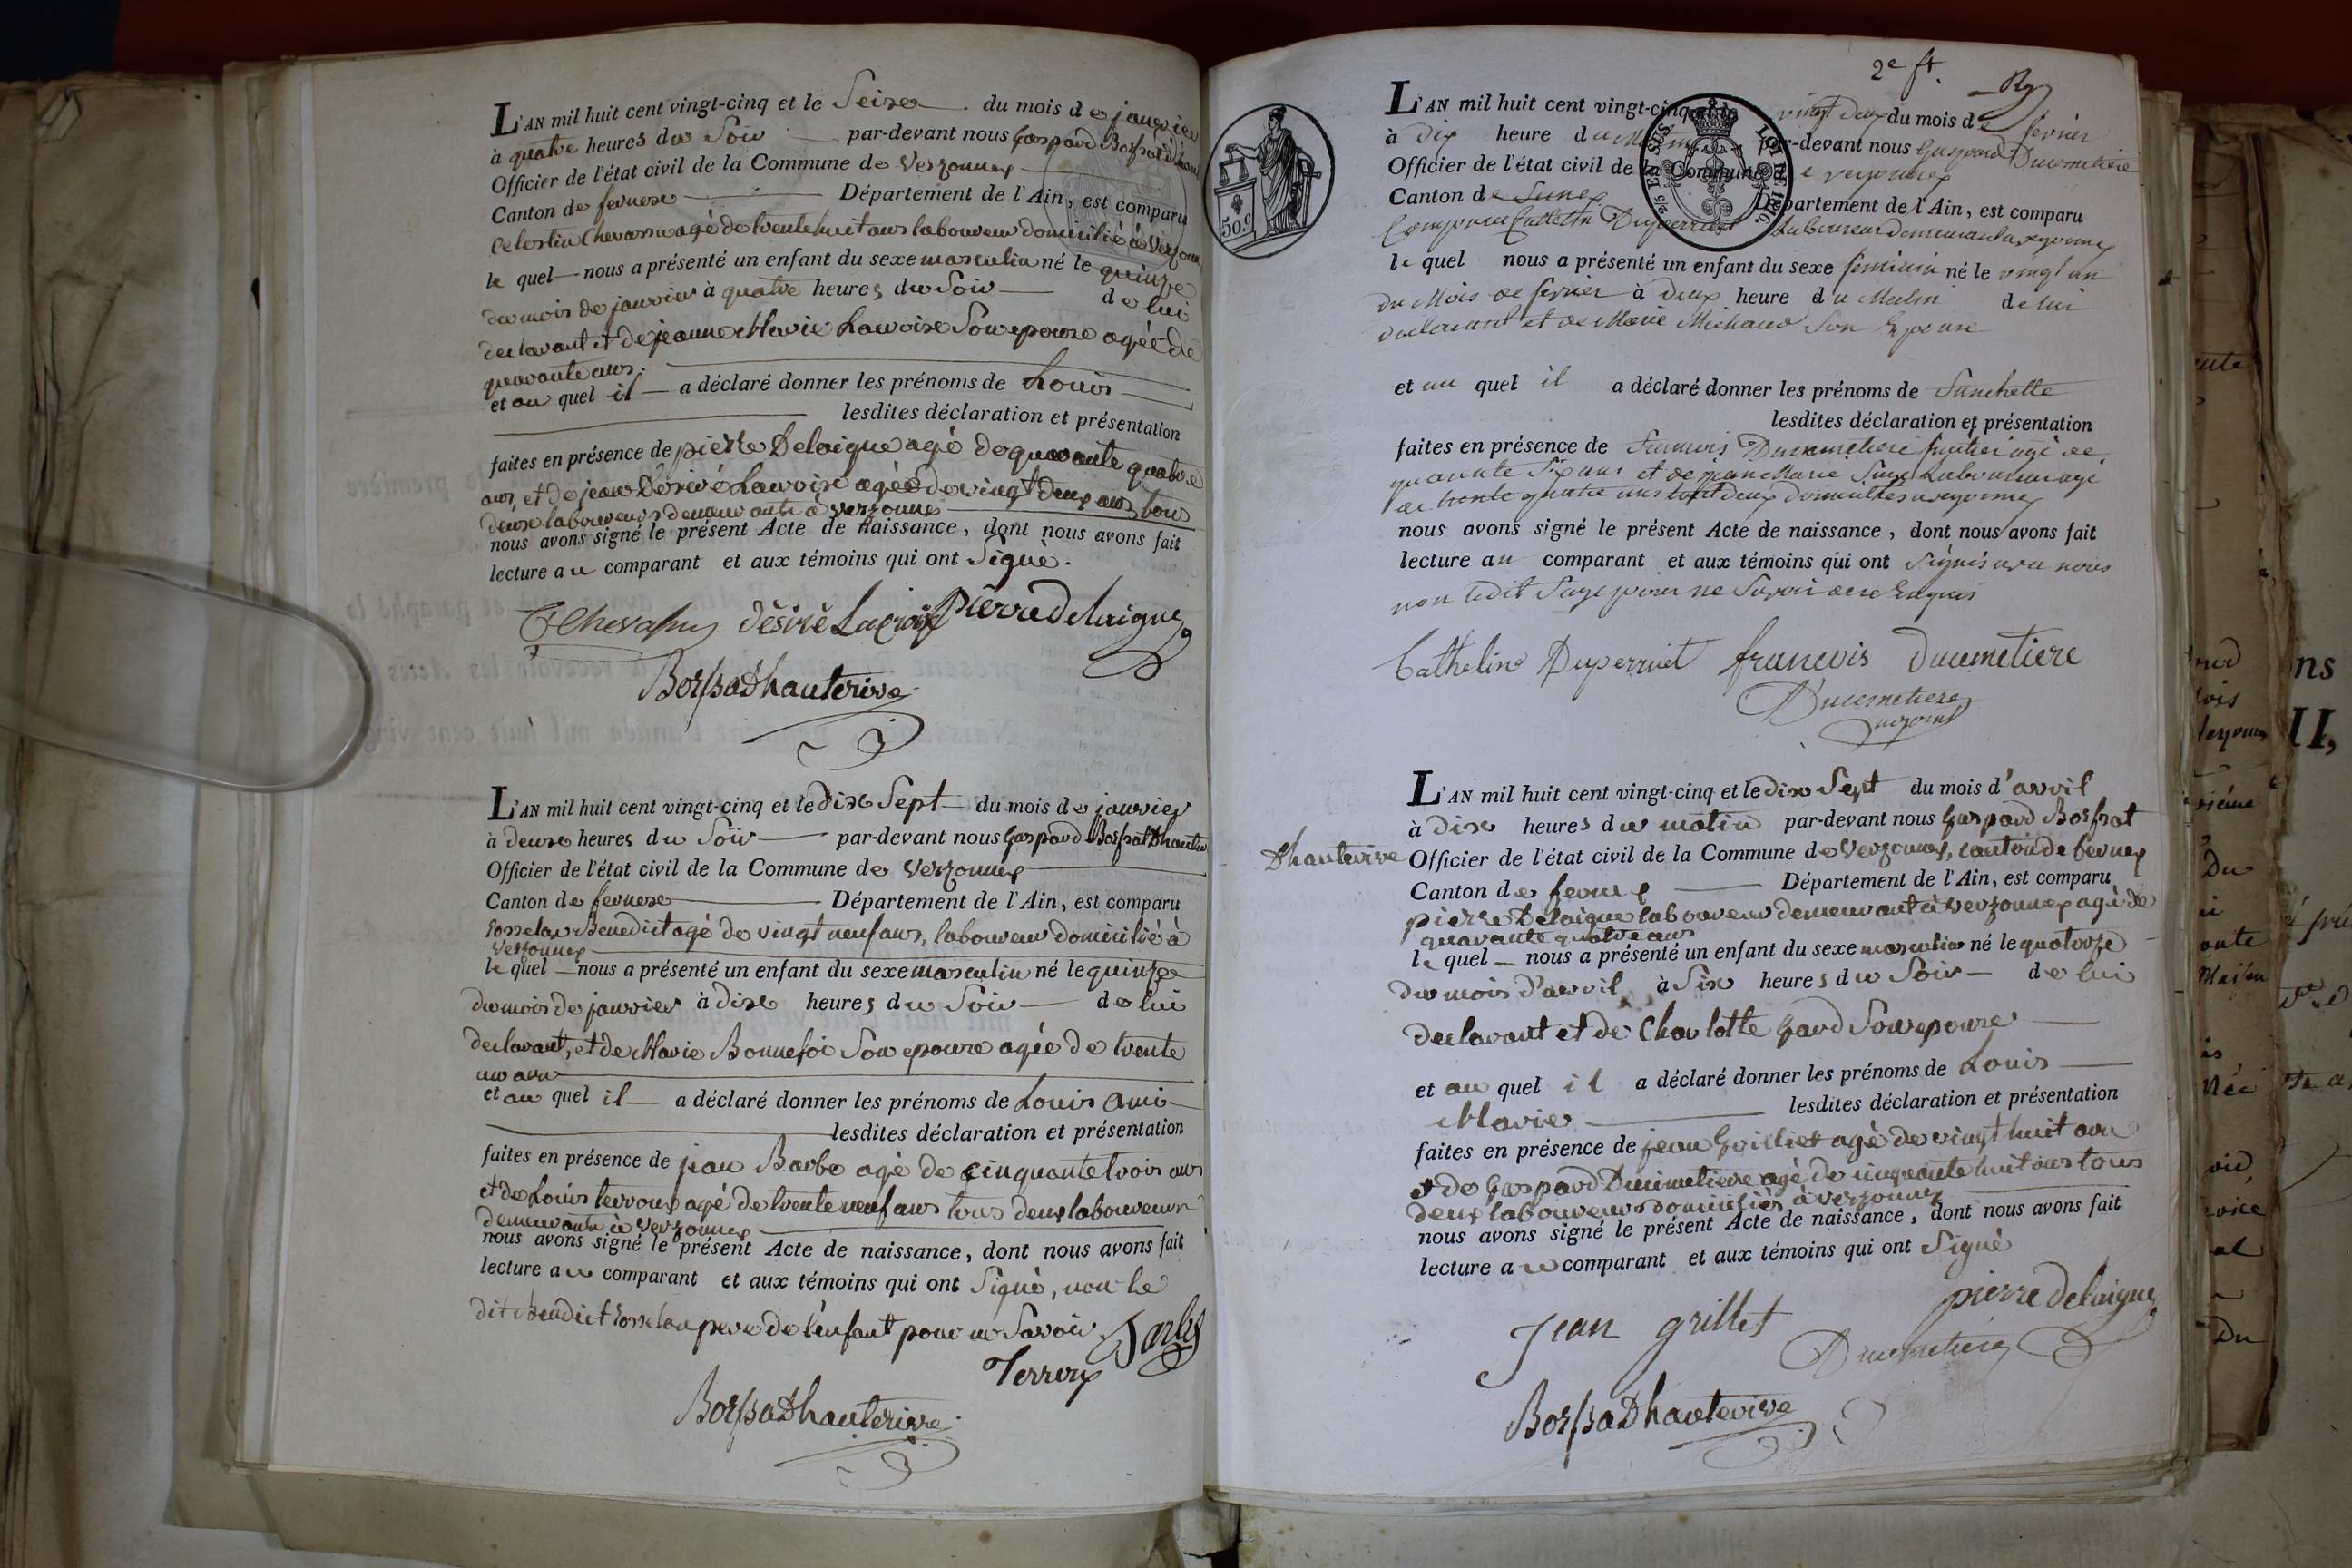 L'AN mil huit cent vingt-cinq et le Seize du mois de janvier
à quatre heures du Soir par-devant nous Gaspard
Officier de l'état civil de la Commune de Verzonnex
Canton de fernex Département de l'Ain, est comparu
Celestin agé de trente huit ans laboureur domicilié à
le quel nous a présenté un enfant du sexe masculin né le quinze
du mois de janvier à quatre heures du Soir de lui
declarant et de jeanne Marie Lacroix Son epouse agée de
quarante ans.
et au quel il a déclaré donner les prénoms de Louis
lesdites déclaration et présentation
faites en présence de pierre Delaigue agé de quarante quatre
ans, et de jean Désiré Lacroix agée de vingt deux ans, tous
deux laboureurs demeurants à Verzonnex
nous avons signé le présent Acte de naissance, dont nous avons fait
lecture au comparant et aux témoins qui ont Signé.
désiré Lacroix pierre Delaigue
BorssaDhauterive
L'AN mil huit cent vingt-cinq et le dix Sept du mois de janvier
à deux heures du Soir par-devant nous Gaspard
Officier de l'état civil de la Commune de Verzonnex
Canton de fernex Département de l'Ain, est comparu
Benedict agé de vingt neuf ans, laboureur domicilié à
Verzonnex
le quel nous a présenté un enfant du sexe masculin né le quinze
du mois de janvier à dix heures du Soir de lui
declarant, et de Marie Bonnefoi Son epouse agée de trente
un ans
et au quel il a déclaré donner les prénoms de Louis Ami
lesdites déclaration et présentation
faites en présence de jean Barbe agé de cinquante trois ans
et de Louis terroux agé de trente neuf ans tous deux laboureurs
demeurants à Verzonnex
nous avons signé le présent Acte de naissance, dont nous avons fait
lecture au comparant et aux témoins qui ont Signé, non le
dit Benedict pere de l'enfant pour ne Savoir.
Terroux
BorssaDhauterive
2e ft.
50.C
LOI DE 1816.
L'AN mil huit cent vingt-cinq et le vingt deux du mois de fevrier
à dix heure du Matin par-devant nous Gaspard Ducimetiere
Officier de l'état civil de la Commune de verzonnex
Canton de Département de l'Ain, est comparu
Duperruet Laboureur demeurant a verzonnex
le quel nous a présenté un enfant du sexe feminin né le vingt un
du Mois de fevrier à deux heure du Matin de lui
declarant et de Marie Michaud Son Epouse
et au quel il a déclaré donner les prénoms de Fanchette
lesdites déclaration et présentation
faites en présence de francois Ducimetiere agé de
quarante Six ans et de jean Marie Sage Laboureur agé
de trente quatre ans tout deux domiciliés a verzonnex
nous avons signé le présent Acte de naissance, dont nous avons fait
lecture au comparant et aux témoins qui ont Signés avec nous
non ledit Sage pour ne Savoir de ce Enquis
Cathelin Duperruet francois Ducimetiere
Ducimetiere
adjoint
L'AN mil huit cent vingt-cinq et le dix Sept du mois d'avril
à dix heures du matin par-devant nous Gaspard Borssat
Dhauterive Officier de l'état civil de la Commune de Verzonnex, canton de fernex
Canton de fernex Département de l'Ain, est comparu
pierre Delaigue laboureur demeurant à Verzonnex agé de
quarante quatre ans
le quel nous a présenté un enfant du sexe masculin né le quatorze
du mois d'avril à Six heures du Soir de lui
declarant et de Charlotte Gard Son epouse
et au quel il a déclaré donner les prénoms de Louis
Marie lesdites déclaration et présentation
faites en présence de jean Grilliet agé de vingt huit ans
et de Gaspard Ducimetiere agé de cinquante huit ans tous
deux laboureurs domiciliés à Verzonnex
nous avons signé le présent Acte de naissance, dont nous avons fait
lecture au comparant et aux témoins qui ont Signé
Jean grillet pierre delaigue
Ducimetiere
BorssaDhauterive